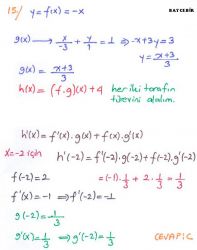 BAYÇEBİR
15/ y = f(x) = -x
g(x) → x/-3 + y/1 = 1 ⇒ -x+3y=3
y = x+3/3
g(x) = x+3/3
h(x) = (f.g)(x) + 4 her iki tarafın türevini alalım.
h'(x) = f'(x).g(x) + f(x).g'(x)
x=-2 için h'(-2) = f'(-2).g(-2) + f(-2).g'(-2)
f(-2) = 2 = (-1).1/3 + 2.1/3 = 1/3
f'(x) = -1 ⇒ f'(-2) = -1
g(-2) = 1/3
g'(x) = 1/3 ⇒ g'(-2) = 1/3 CEVAP: C